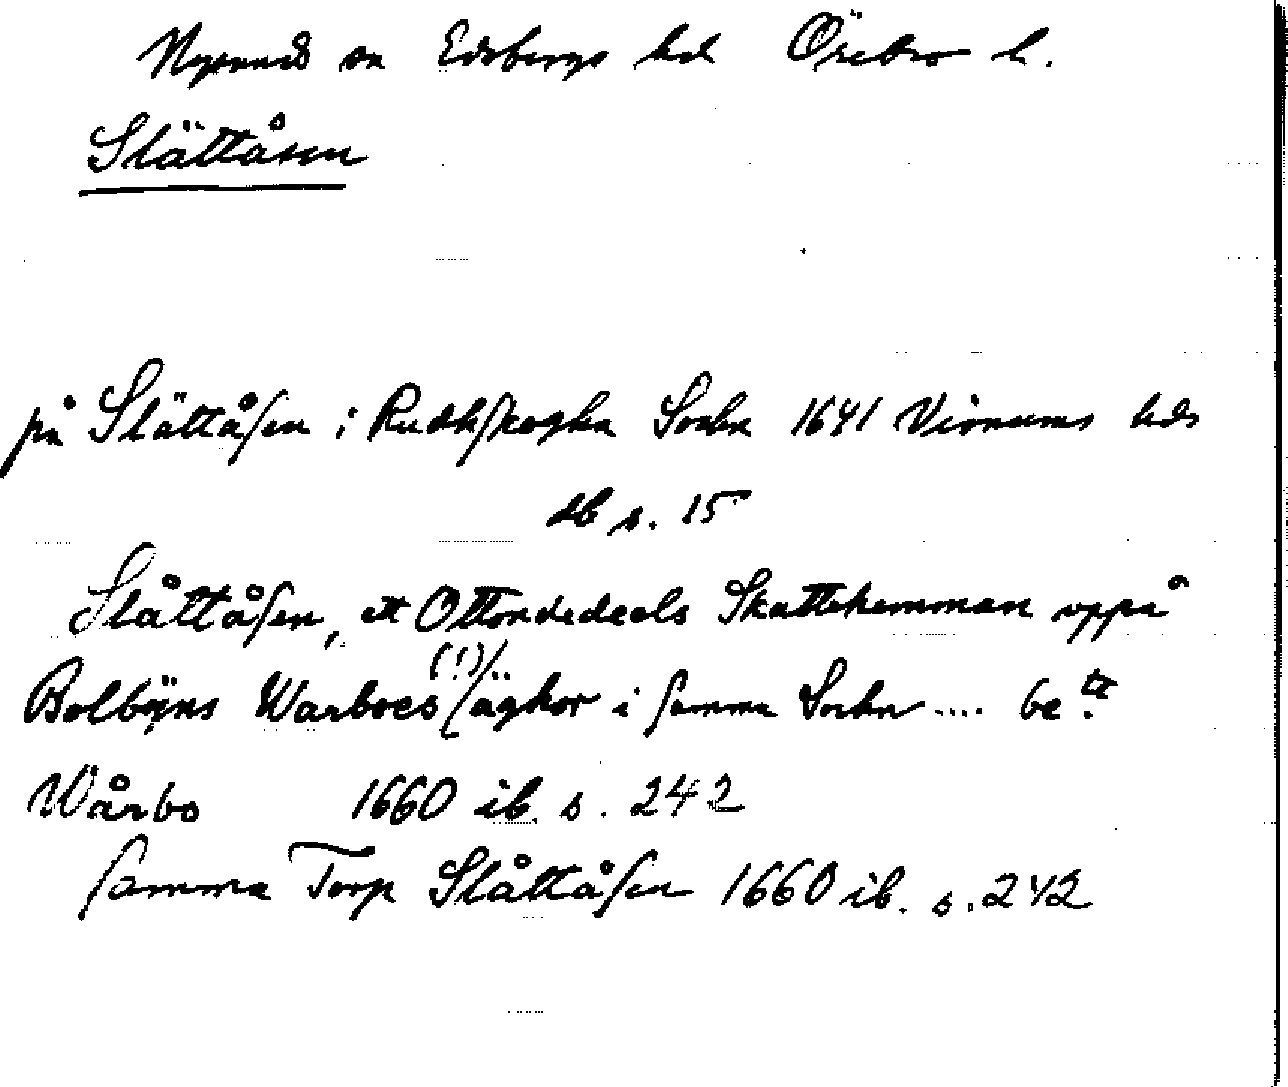 Nysund sn Edsbergs hd Örebro l.
Slättåsen
på Slättåsen i Rudhskogha Sochn 1641 Visnums hds
db s. 15
Slåttåsen, ett Ottondedeels Skattehemman oppå
Bolbÿns Warboes (!) / äghor i samma Sochn .... be:tt
Wårbo 1660 ib. s. 242
samma Torp Slåttåsen 1660 ib. s. 242